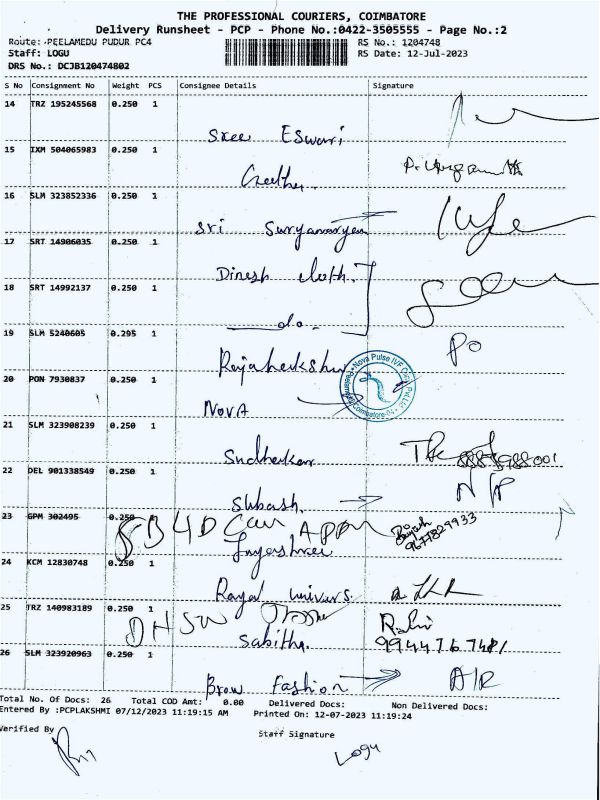 THE PROFESSIONAL COURIERS, COIMBATORE
Delivery Runsheet - PCP - Phone No.:0422-3505555 - Page No.:2
Route: PEELAMEDU PUDUR PC4 RS No.: 1204748
Staff: LOGU RS Date: 12-Jul-2023
DRS No.: DCJB120474802
S No Consignment No Weight PCS Consignee Details Signature
14 TRZ 195245568 0.250 1
Sree Eswari
15 IXM 504065983 0.250 1
Geetha
16 SLM 323852336 0.250 1
Sri Suryanarayan
17 SRT 14906035 0.250 1
Dinesh cloth.
18 SRT 14992137 0.250 1
do
19 SLM 5240605 0.295 1
PO
20 PON 7930837 0.250 1
Nova Pulse IVF
NOVA
21 SLM 323908239 0.250 1
Sudhakar
22 DEL 901338549 0.250 1
Subash N/P
23 GPM 302495 0.250 1
9677829933
Jayashree
24 KCM 12830748 0.250 1
Royal univers.
25 TRZ 140983189 0.250 1
Sabitha.
26 SLM 323920963 0.250 1
Brow Fashion
Total No. Of Docs: 26 Total COD Amt: 0.00 Delivered Docs: Non Delivered Docs:
Entered By :PCPLAKSHMI 07/12/2023 11:19:15 AM Printed On: 12-07-2023 11:19:24
Verified By Staff Signature
Logu